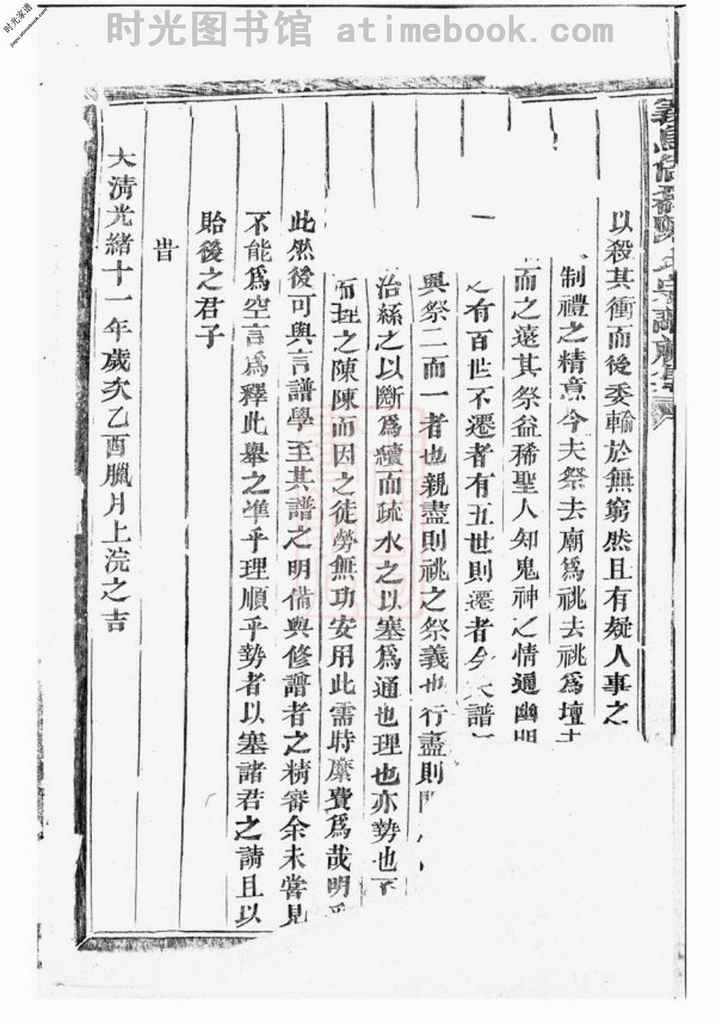 时光图书馆 atimebook.com
时光家谱
jiapu.atimebook.com
以殺其衝而後委輸於無窮然且有疑人事之
制禮之精意今夫祭去廟爲祧去祧爲壇
而之遠其祭益稀聖人知鬼神之情通幽明
有百世不遷者有五世則遷者今夫譜
與祭二而一者也親盡則祧之祭義也行盡則
治絲之以斷爲續而疏水之以塞爲通也理也亦勢也
而理之陳陳而因之徒勞無功安用此需時縻費爲哉明乎
此然後可與言譜學至其譜之明備與修譜者之精審余未嘗見
不能爲空言爲釋此舉之準乎理順乎勢者以塞諸君之請且以
貽後之君子
旹
大清光緒十一年歲次乙酉臘月上浣之吉